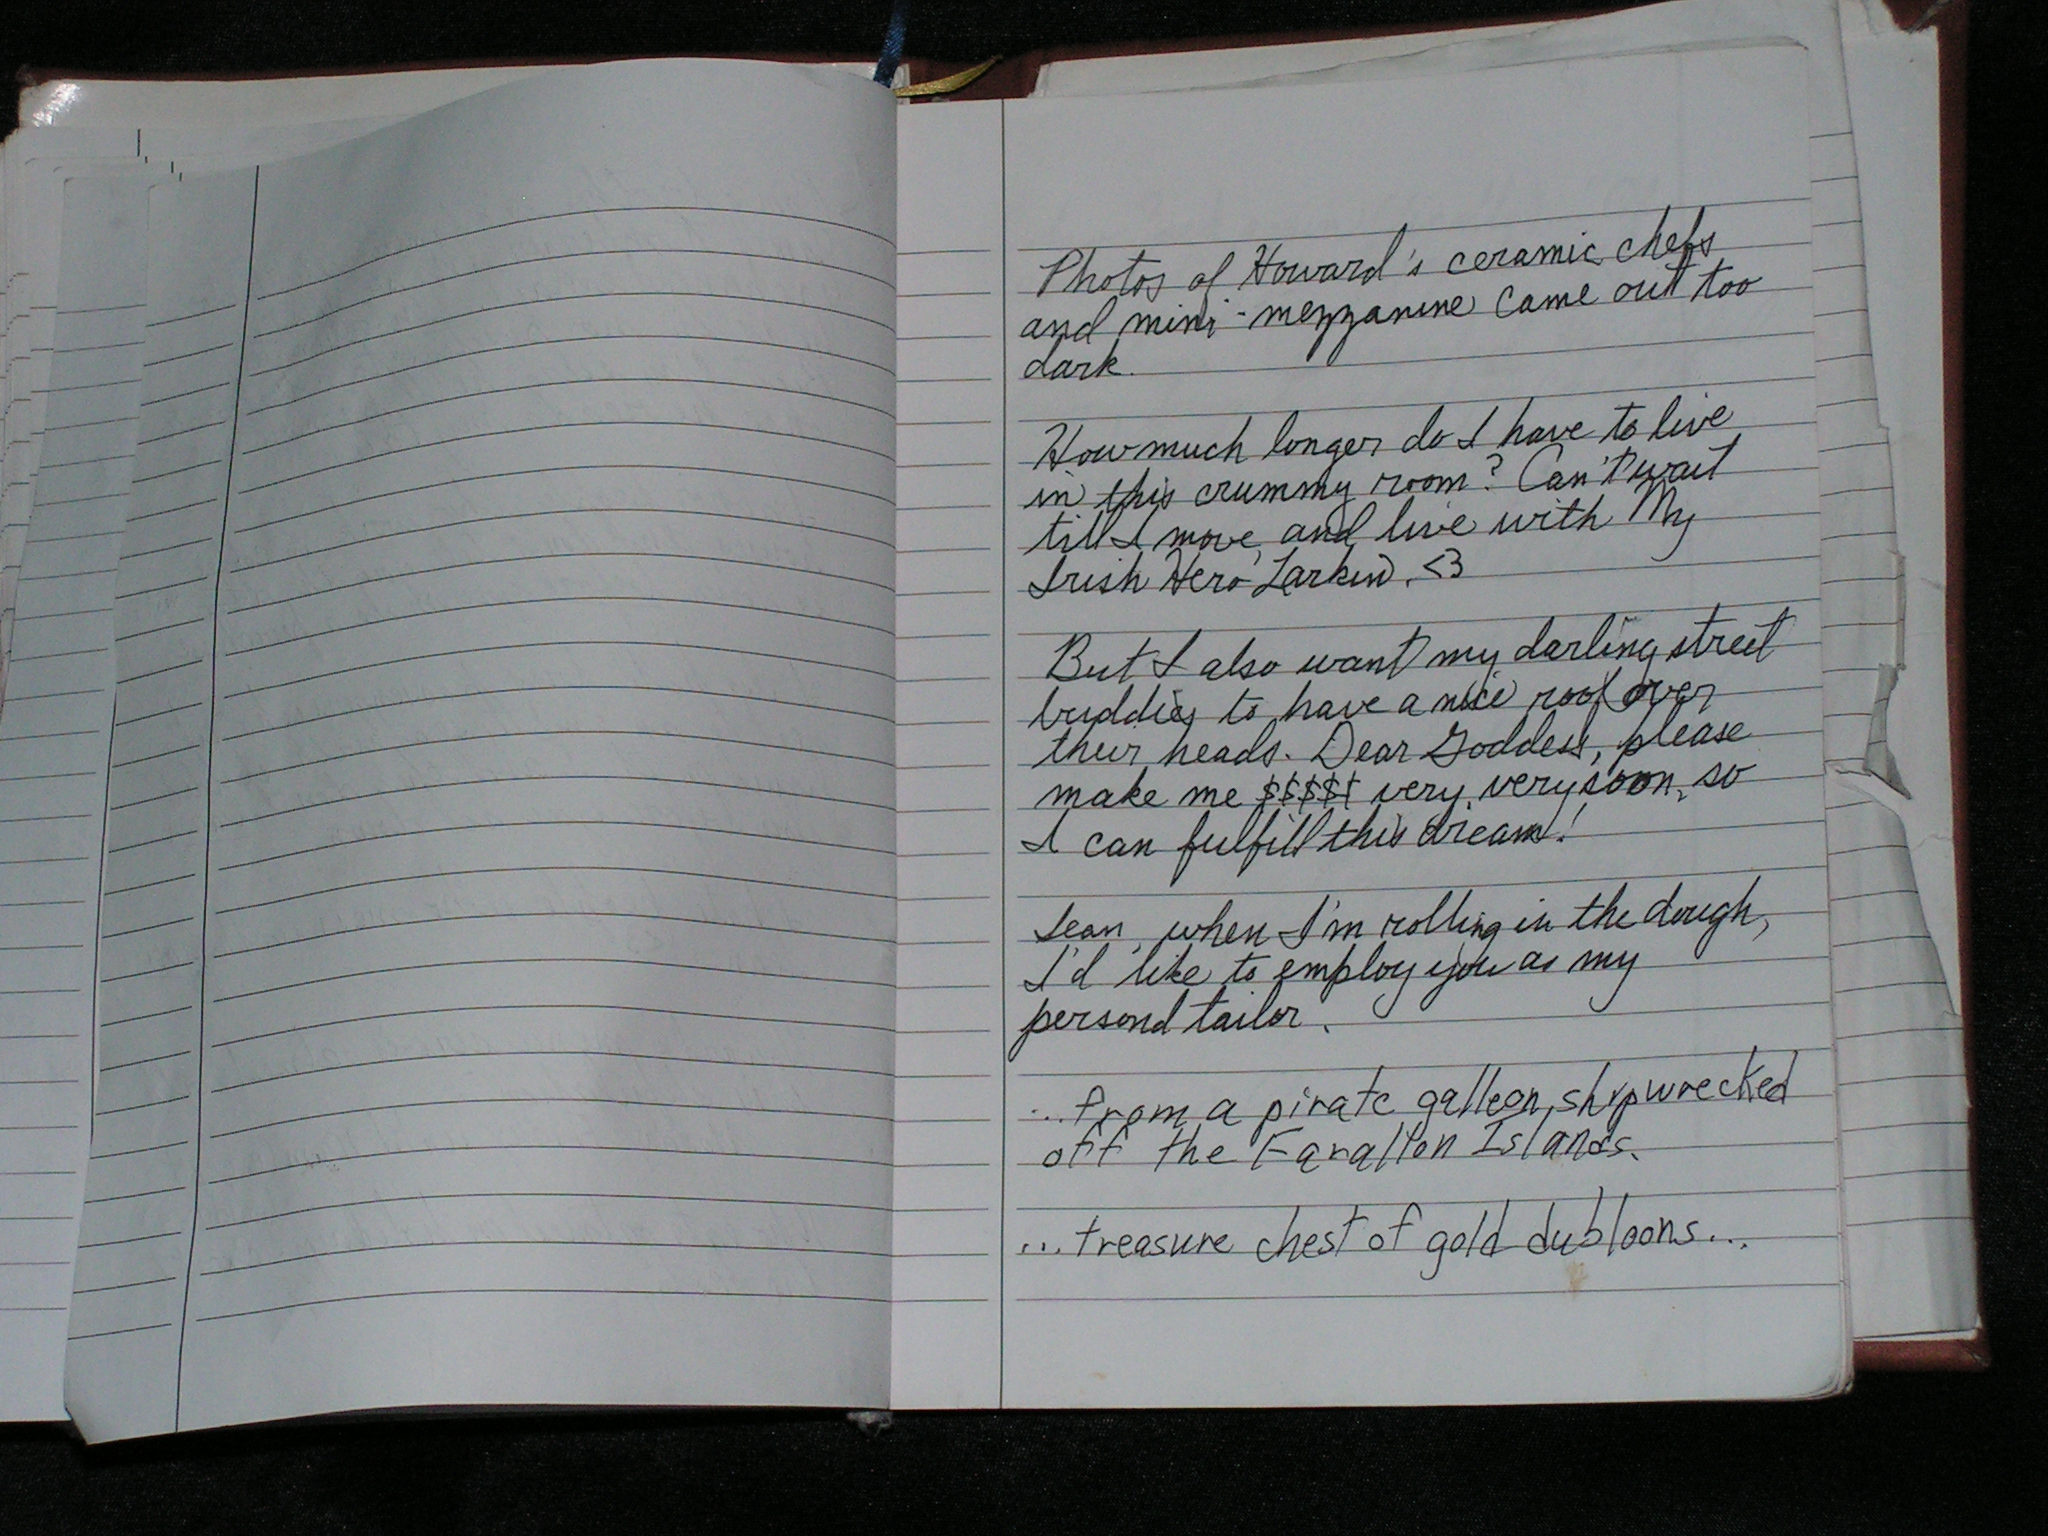 Photos of Howard's ceramic chefs
and mini-mezzanine came out too
dark.
How much longer do I have to live
in this crummy room? Can't wait
till I move and live with My
Irish Hero Larkin. <3
But I also want my darling street
buddies to have a nice roof over
their heads. Dear Goddess, please
make me $$$$$ very, very soon, so
I can fulfill this dream!
Sean, when I'm rolling in the dough,
I'd like to employ you as my
personal tailor.
...from a pirate galleon, shipwrecked
off the Farallon Islands.
...treasure chest of gold dubloons...